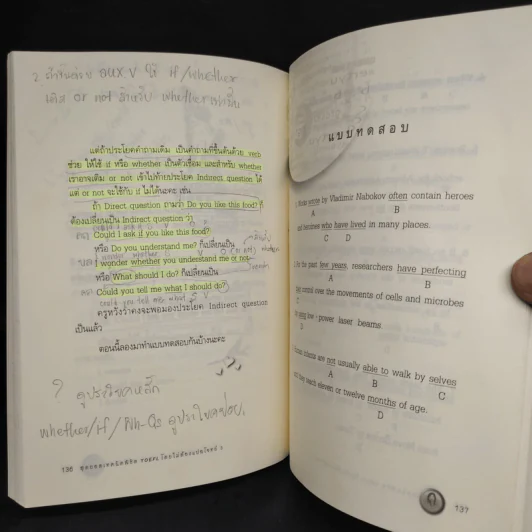 2. ถ้าขึ้นด้วย aux V ใช้ if/whether
เติม or not สำหรับ whether เท่านั้น
แต่ถ้าประโยคคำถามเดิม เป็นคำถามที่ขึ้นต้นด้วย verb
ช่วย ให้ใช้ if หรือ whether เป็นตัวเชื่อม และสำหรับ whether
เราอาจเติม or not เข้าไปท้ายประโยค Indirect question ได้
แต่ or not จะใช้กับ if ไม่ได้นะคะ เช่น
ถ้า Direct question ถามว่า Do you like this food? ก็
ต้องเปลี่ยนเป็น Indirect question ว่า
Could I ask if you like this food?
หรือ Do you understand me? ก็เปลี่ยนเป็น
I wonder whether you understand me or not.
หรือ What should I do? ก็เปลี่ยนเป็น
Could you tell me what I should do?
could you tell me what
ครูหวังว่าคงจะพอมองประโยค Indirect question
เป็นแล้ว
ตอนนี้ลองมาทำแบบทดสอบกันบ้างนะคะ
? ดูประโยคหลัก
whether/if/Wh-Qs
136
แบบทดสอบ
wrote by Vladimir Nabokov often contain heroes
A B
who have lived in many places.
C D
the past few years, researchers have perfecting
A B
control over the movements of cells and microbes
C
using low-power laser beams
D
are not usually able to walk by selves
A B C
each eleven or twelve months of age.
D
137